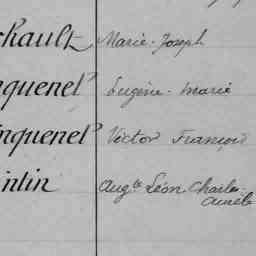 chault Marie-Joseph
nquenel Eugène-Marie
nquenel Victor François
intin Aug.te Léon Charles
Aurèle